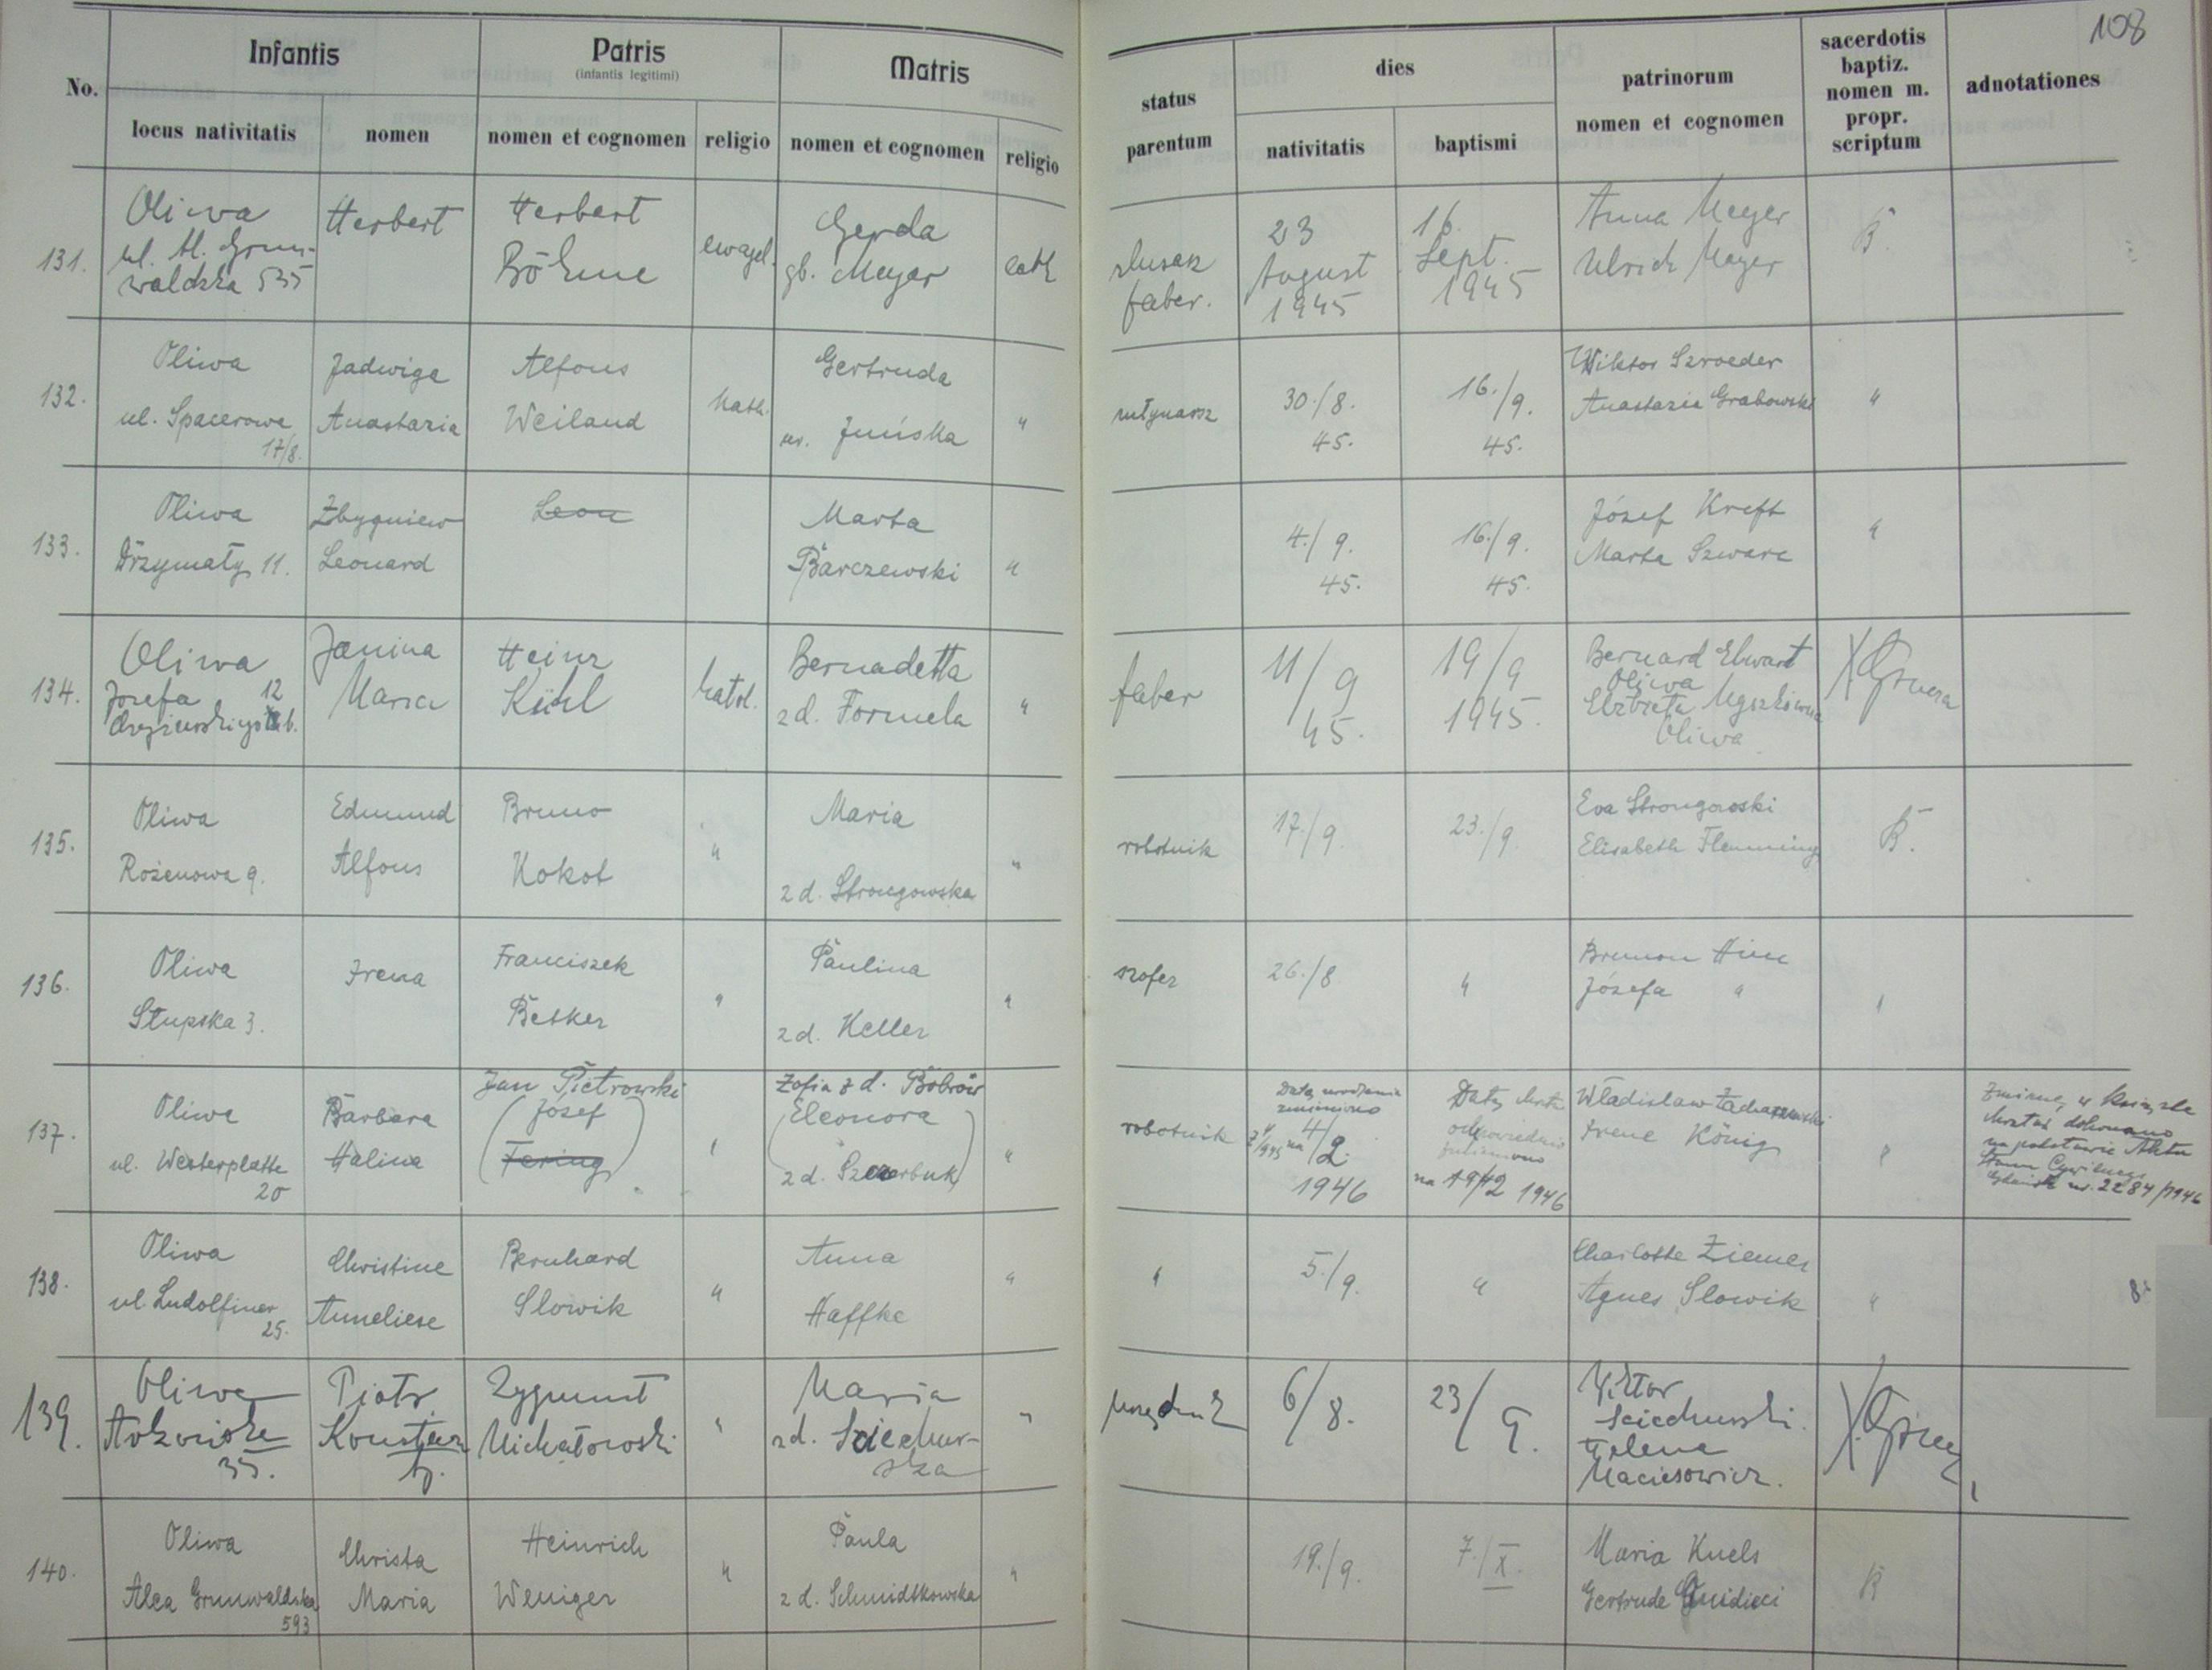 108
No.
Infantis
Patris
(infantis legitimi)
Matris
status parentum
dies
patrinorum
nomen et cognomen
sacerdotis
baptiz.
nomen m.
propr.
scriptum
adnotationes
locus nativitatis
nomen
nomen et cognomen
religio
nomen et cognomen
religio
nativitatis
baptismi
131.
Oliwa
ul. Al. Grun-
waldzka 535
Herbert
Herbert
Böhme
ewagel.
Gerda
gb. Meyer
cath
slusarz
faber.
23
August
1945
16.
Sept.
1945
Anna Meyer
Ulrich Meyer
B
132.
Oliwa
ul. Spacerowa
17/8.
Jadwiga
Anastazia
Alfons
Weiland
kath.
Gertruda
ur.
"
młynarz
30./8.
45.
16./9.
45.
Wiktor Szroeder
Anastazia Grabowski
"
133.
Oliwa
Drzymały 11.
Zbygniew
Leonard
Leon
Marta
Barczewski
"
4./9.
45.
16./9.
45.
Józef Kreft
Marta Szwarc
"
134.
Oliwa
Josefa 12
Janina
Maria
Heinz
Kühl
katol.
Bernadetta
z d. Formela
"
faber
11/9
45.
19/9
1945.
Bernard Elwart
Oliwa
Elżbieta
Oliwa
135.
Oliwa
Rożenowa 9.
Edmund
Alfons
Bruno
Kokot
"
Maria
z d. Strongowska
"
robotnik
17./9.
23./9.
Eva Strongowski
Elisabeth Flemming
B.
136.
Oliwa
Słupska 3.
Irena
Franciszek
Betker
"
Paulina
z d. Keller
"
szofer
26./8
"
Brunon
Józefa "
"
137.
Oliwa
ul. Westerplatte
20
Barbara
Halina
Jan Pietrowski
(Józef
Fering)
"
Zofia z d. Bobrów
(Eleonora
z d. Szczerbuk)
"
robotnik
Datę urodzenia
zmieniono
na 4/2.
1946
Datę chrztu
odpowiednio
zmieniono
na 19/2 1946
Władislaw
Irene König
"
Zmianę w księdze
chrztów dokonano
na podstawie Aktu
Stanu Cywilnego
Gdańsk nr. 2284/1946
138.
Oliwa
ul. Ludolfiner
25.
Christine
Anneliese
Bernhard
Slowik
"
Anna
Haffke
"
"
5./9.
"
Charlotte Ziemer
Agnes Slowik
"
139.
Oliwa
35.
Piotr
Konstan
ty.
Zygmunt
Michałowski
"
Maria
z d.
"
6/8.
23/9.
Wiktor
Helena
140.
Oliwa
Alea Grunwaldska
593
Christa
Maria
Heinrich
Weniger
"
Paula
z d. Schmidtkowska
"
19./9.
7./X.
Maria Kuels
Gertrude
B